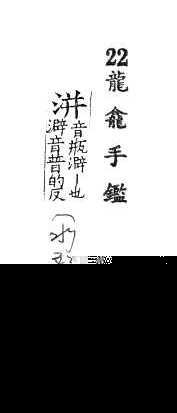 22龍龕手鑑
洴音瓶澼—也
澼音普的反